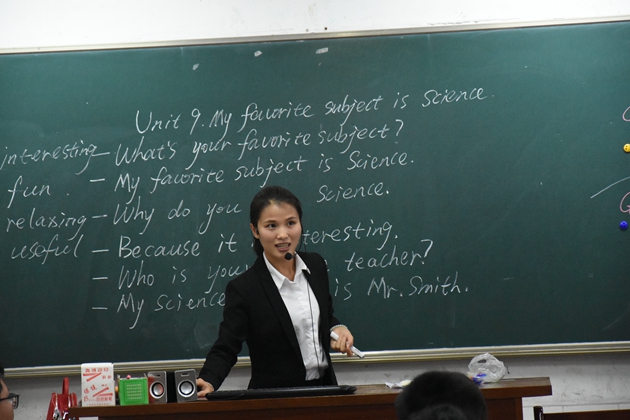 Unit 9. My favorite subject is Science.
interesting – What's your favorite subject?
fun – My favorite subject is Science.
relaxing – Why do you Science.
useful – Because it interesting.
– Who is your teacher?
– My Science is Mr. Smith.